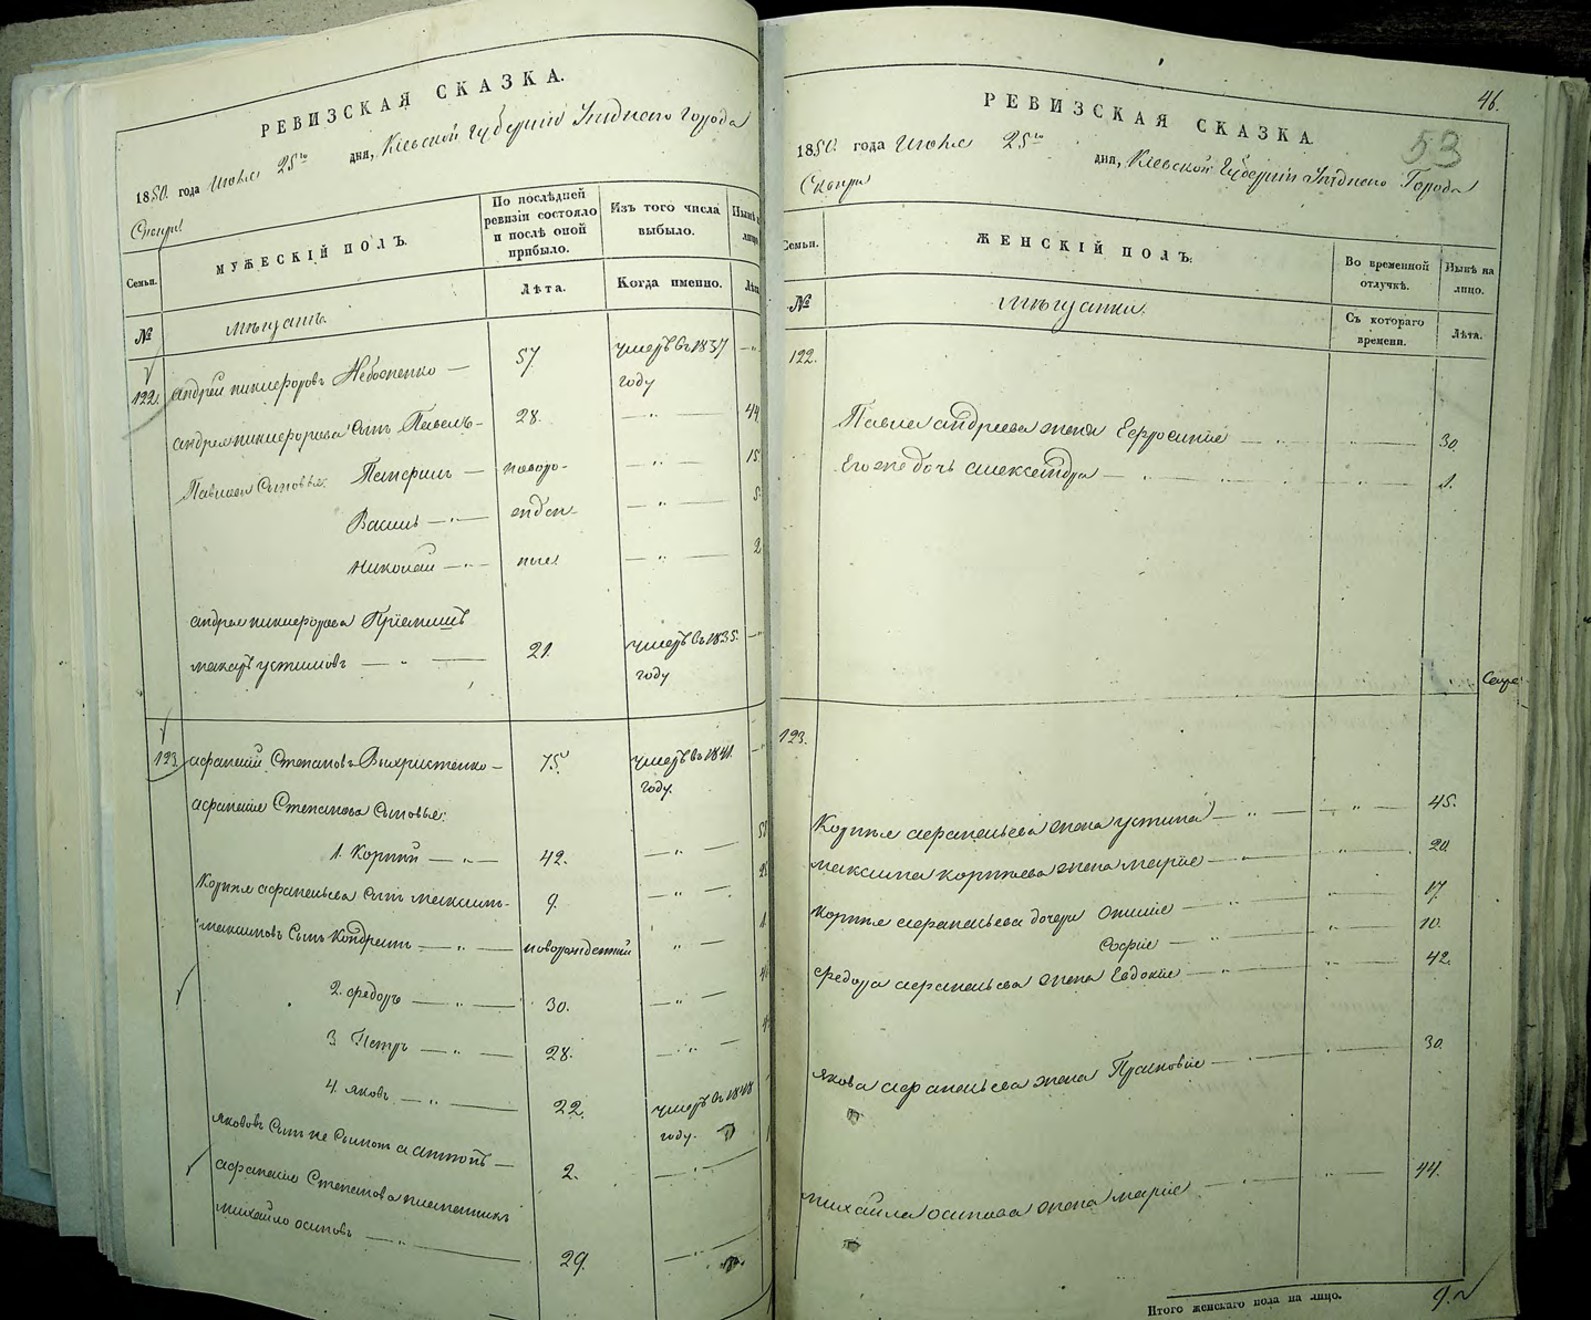 РЕВИЗСКАЯ СКАЗКА.
1850. года Июля 25го дня, Кіевской Губерніи Уѣзднаго Города
Сквиры
Семьи.
МУЖЕСКІЙ ПОЛЪ.
По послѣдней ревизіи состояло и послѣ оной прибыло.
Изъ того числа выбыло.
Нынѣ на лицо
№
Лѣта.
Когда именно.
Лѣта
Мѣщанъ.
122. Андрей Никифоровъ — 57. умеръ въ 1837 году — " —
Андрея Никифорова сынъ Павелъ — 28. — " — 44
Павла Сыновья: — новоро- — " — 15.
Василь — " — жден- — " — 5.
Николай — " — ные — " — 2
Андрея Никифорова Пріемышъ
Макаръ Устимовъ — " — 21. умеръ въ 1835. году
123. Афанасій Степановъ Вихристенко — 75. умеръ въ 1841. году.
Афанасія Степанова Сыновья:
1. Корнѣй — " — 42. — " —
Корнѣя Афанасьева сынъ Максимъ — 9. — " —
Максимовъ Сынъ Кондратъ — " — новорожденный " — 1.
2. Федоръ — " — 30. — " —
3 Петръ — " — 28. — " —
4. Яковъ — " — 22. умеръ въ 1848 году.
Яковъ Сынъ — 2. — " —
Афанасія Степанова племянникъ
Михайло Осиповъ — " — 29. — " —
46.
53
РЕВИЗСКАЯ СКАЗКА.
1850. года Июля 25го дня, Кіевской Губерніи Уѣзднаго Города
Сквиры
Семьи.
ЖЕНСКІЙ ПОЛЪ.
Во временной отлучкѣ.
Нынѣ на лицо.
№
Съ котораго времени.
Лѣта.
Мѣщанки.
122.
Павла Андреева жена Ефросинія — " — " — 30.
Его же дочь Александра — " — " — 1.
123.
Корнѣя Афанасьева жена Устина — " — " — 45.
Максима Корнѣева жена Марія — " — " — 20.
Корнѣя Афанасьева дочери — " — " — 17.
Софія — " — " — 10.
Федора Афанасьева жена Евдокія — " — " — 42.
Якова Афанасьева жена Прасковія — " — " — 30.
Михайла Осипова жена Марія — " — " — 44.
Итого женскаго пола на лицо. 9.